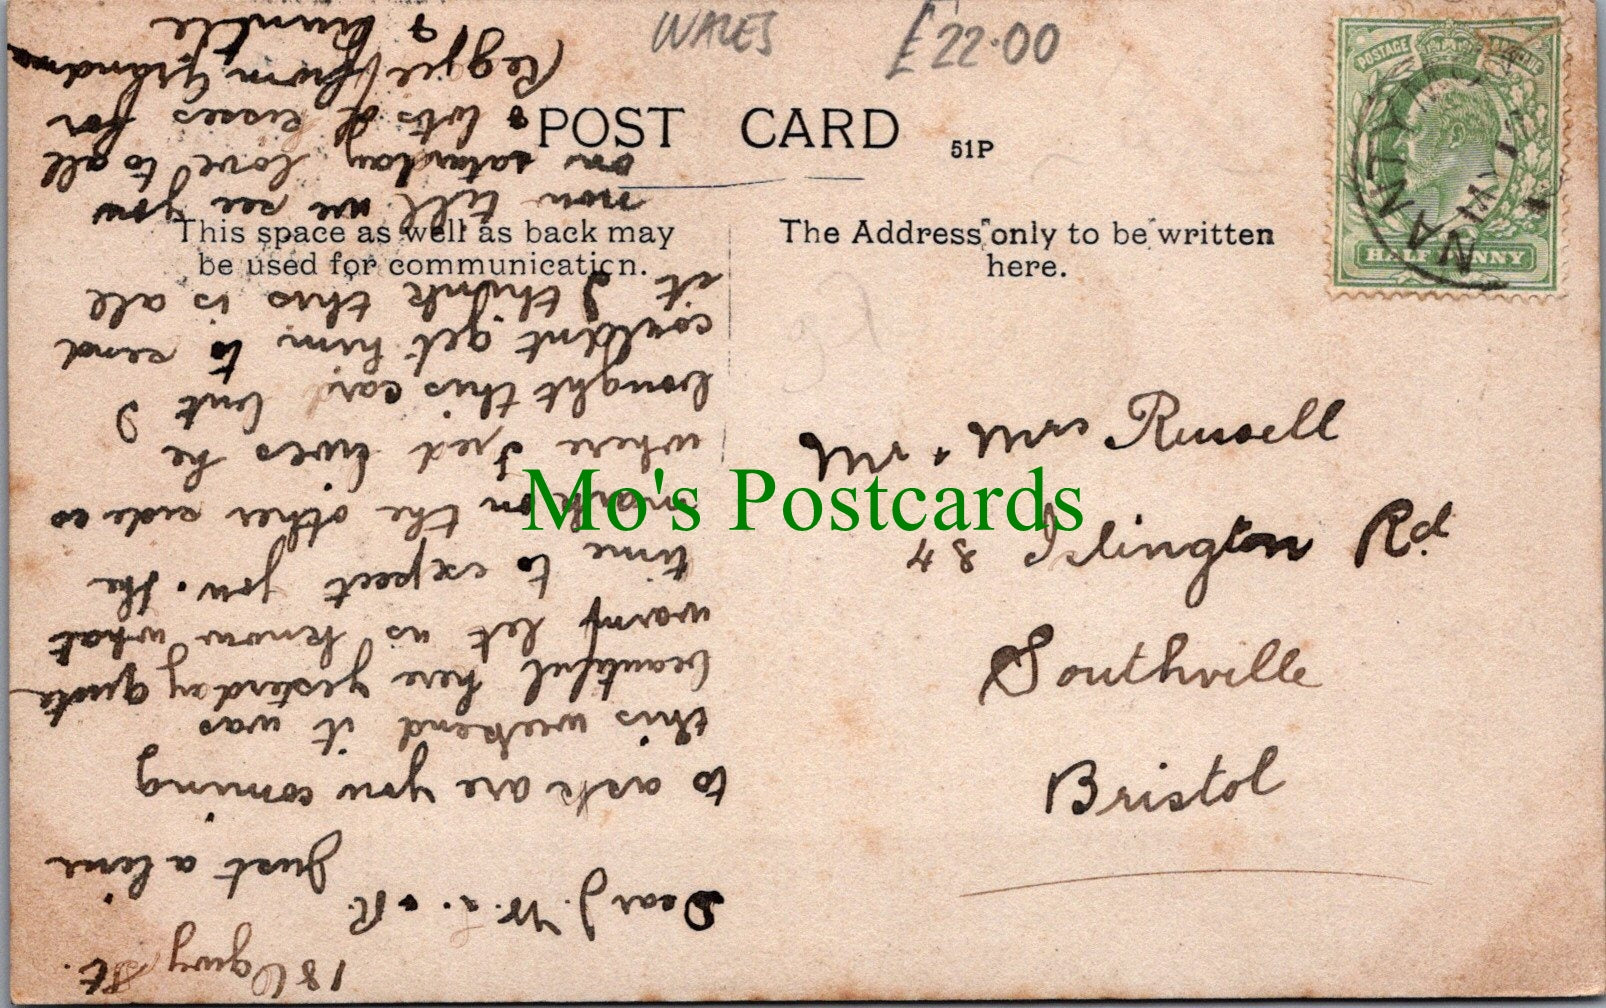 WALES £22.00
POST CARD 51P
This space as well as back may
be used for communication.
The Address only to be written
here.
POSTAGE
HALFPENNY
NANTYMOEL
Mr + Mrs Russell
84 Islington Rd
Southville
Bristol
Mo's Postcards
18 Ogwy St.
Dear J. W. L. & R.
Just a line
to ask are you coming
this weekend it was
beautiful here yesterday quite
warm let us know what
time to expect you. The
mark on the other side is
where Fred lives he
bought this card but I
couldnt get him to send
it I think this is all
now till we see you
on saturday love to all
& lots of kisses for
Reggie from Grandma
& Auntie